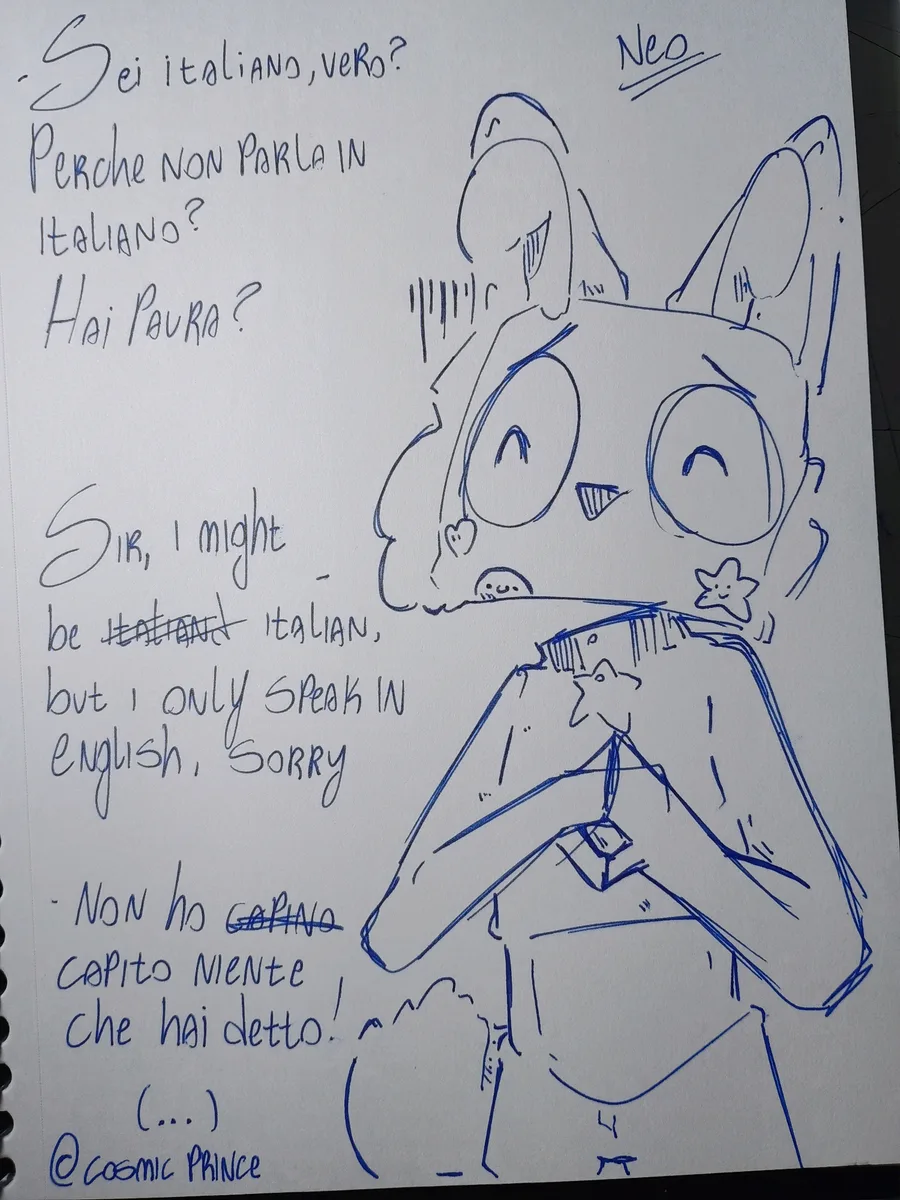 - Sei italiano, vero?
Neo
Perche non parla in
italiano?
Hai paura?
Sir, I might
be italiano italian,
but I only speak in
english, sorry
- Non ho capino
capito niente
che hai detto!
(...)
@cosmic prince